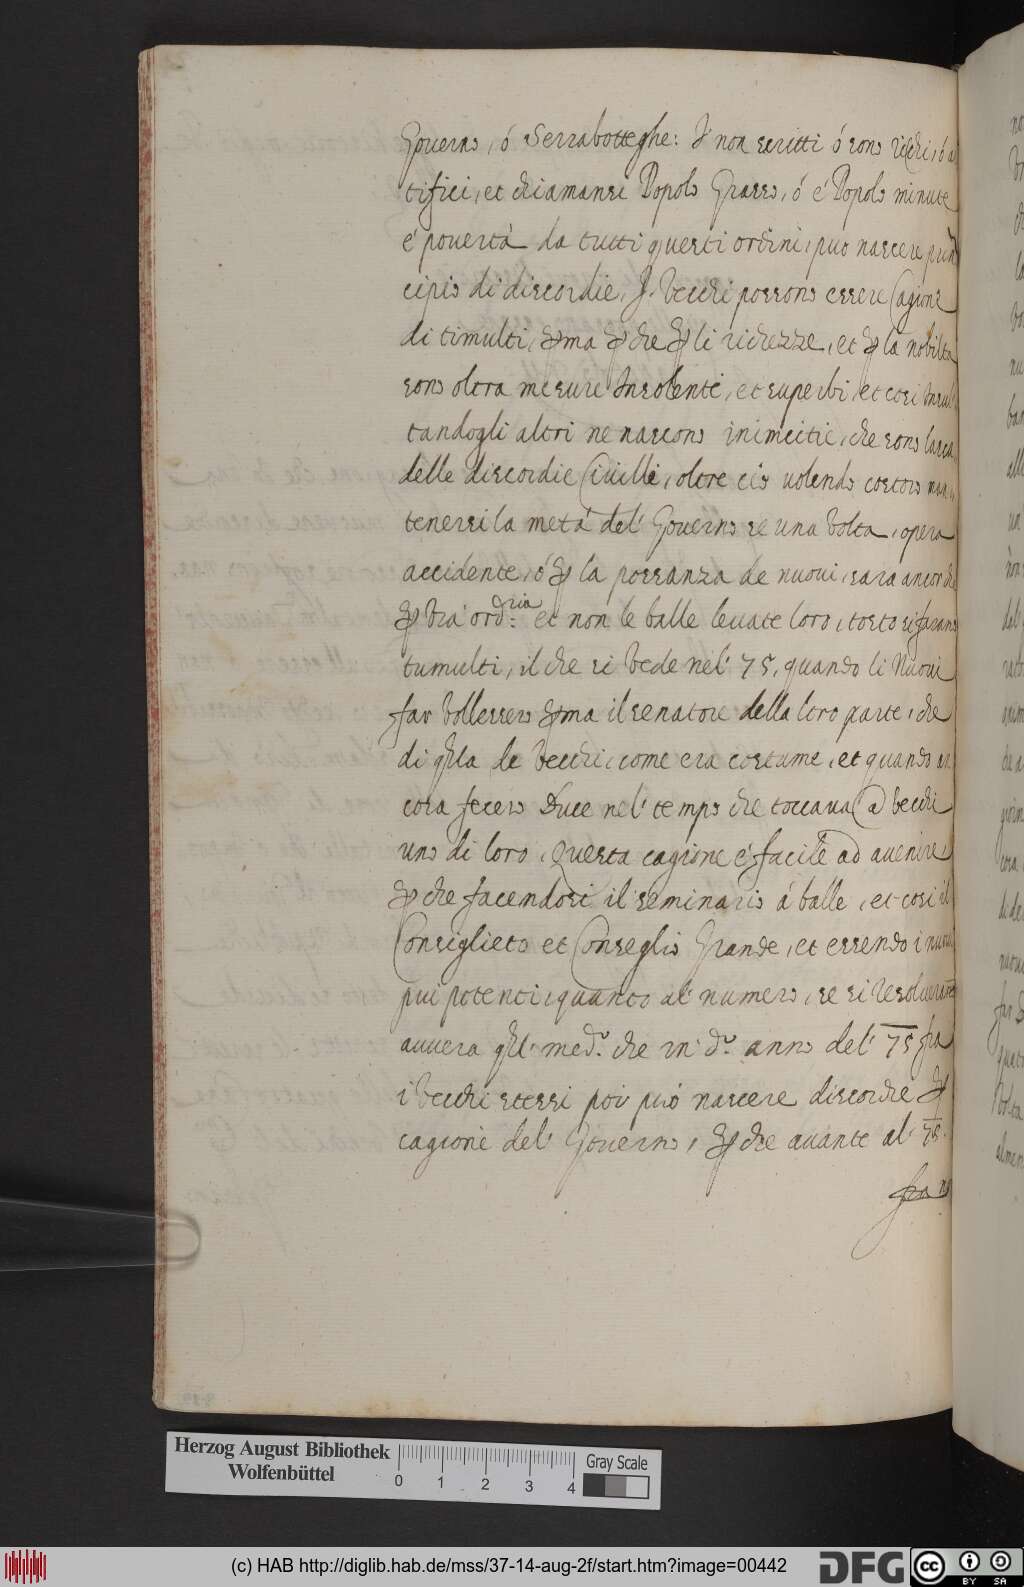 Gouerno, ó Serrabotteghe: I non scritti ó sono ricchi, ó ar
tifici, et chiamansi Popolo Grasso, ó é Popolo minute
é pouertà da tutti questi ordini, puo nascere prin
cipio di discordie, I. Vecchi possono essere Cagione
di timulti, pma p che p li richezze, et p la nobilta
sono oltra mesure Insolenti, et superbi, et cosi Insul
tandogli altri ne nascono inimicitie, che sono
delle discordie Ciuille, oltre ció uolendo costoro man
tenersi la metá del' Gouerno se una Volta, opera
accidente, ó p la possanza de nuoui, sara ancor che
p Via ord.ria et non le balle leuate loro, tosto si farano
tumulti, il che si Vede nel' 75, quando li Nuoui
far Vollessero pma il senatore della loro parte, che
di qlla de Vecchi, come era costume, et quando an
cora fecero Duce nel' tempo che toccaua a Vecchi
uno di loro, Questa cagione é facile ad auenire,
p che facendosi il seminario á balle, et cosi il
Consiglieto et Conseglio Grande, et essendo i nuoui
pui potenti, quanto al' numero, se si resoluerano
auuera ql' med.º che in d.º anno del' 75 fra
i Vecchi stessi poi puó nascere discordie p
cagione del' Gouerno, p che auante al' 75.
fra n
Herzog August Bibliothek
Wolfenbüttel
0 1 2 3 4
Gray Scale
(c) HAB http://diglib.hab.de/mss/37-14-aug-2f/start.htm?image=00442
DFG
cc BY SA